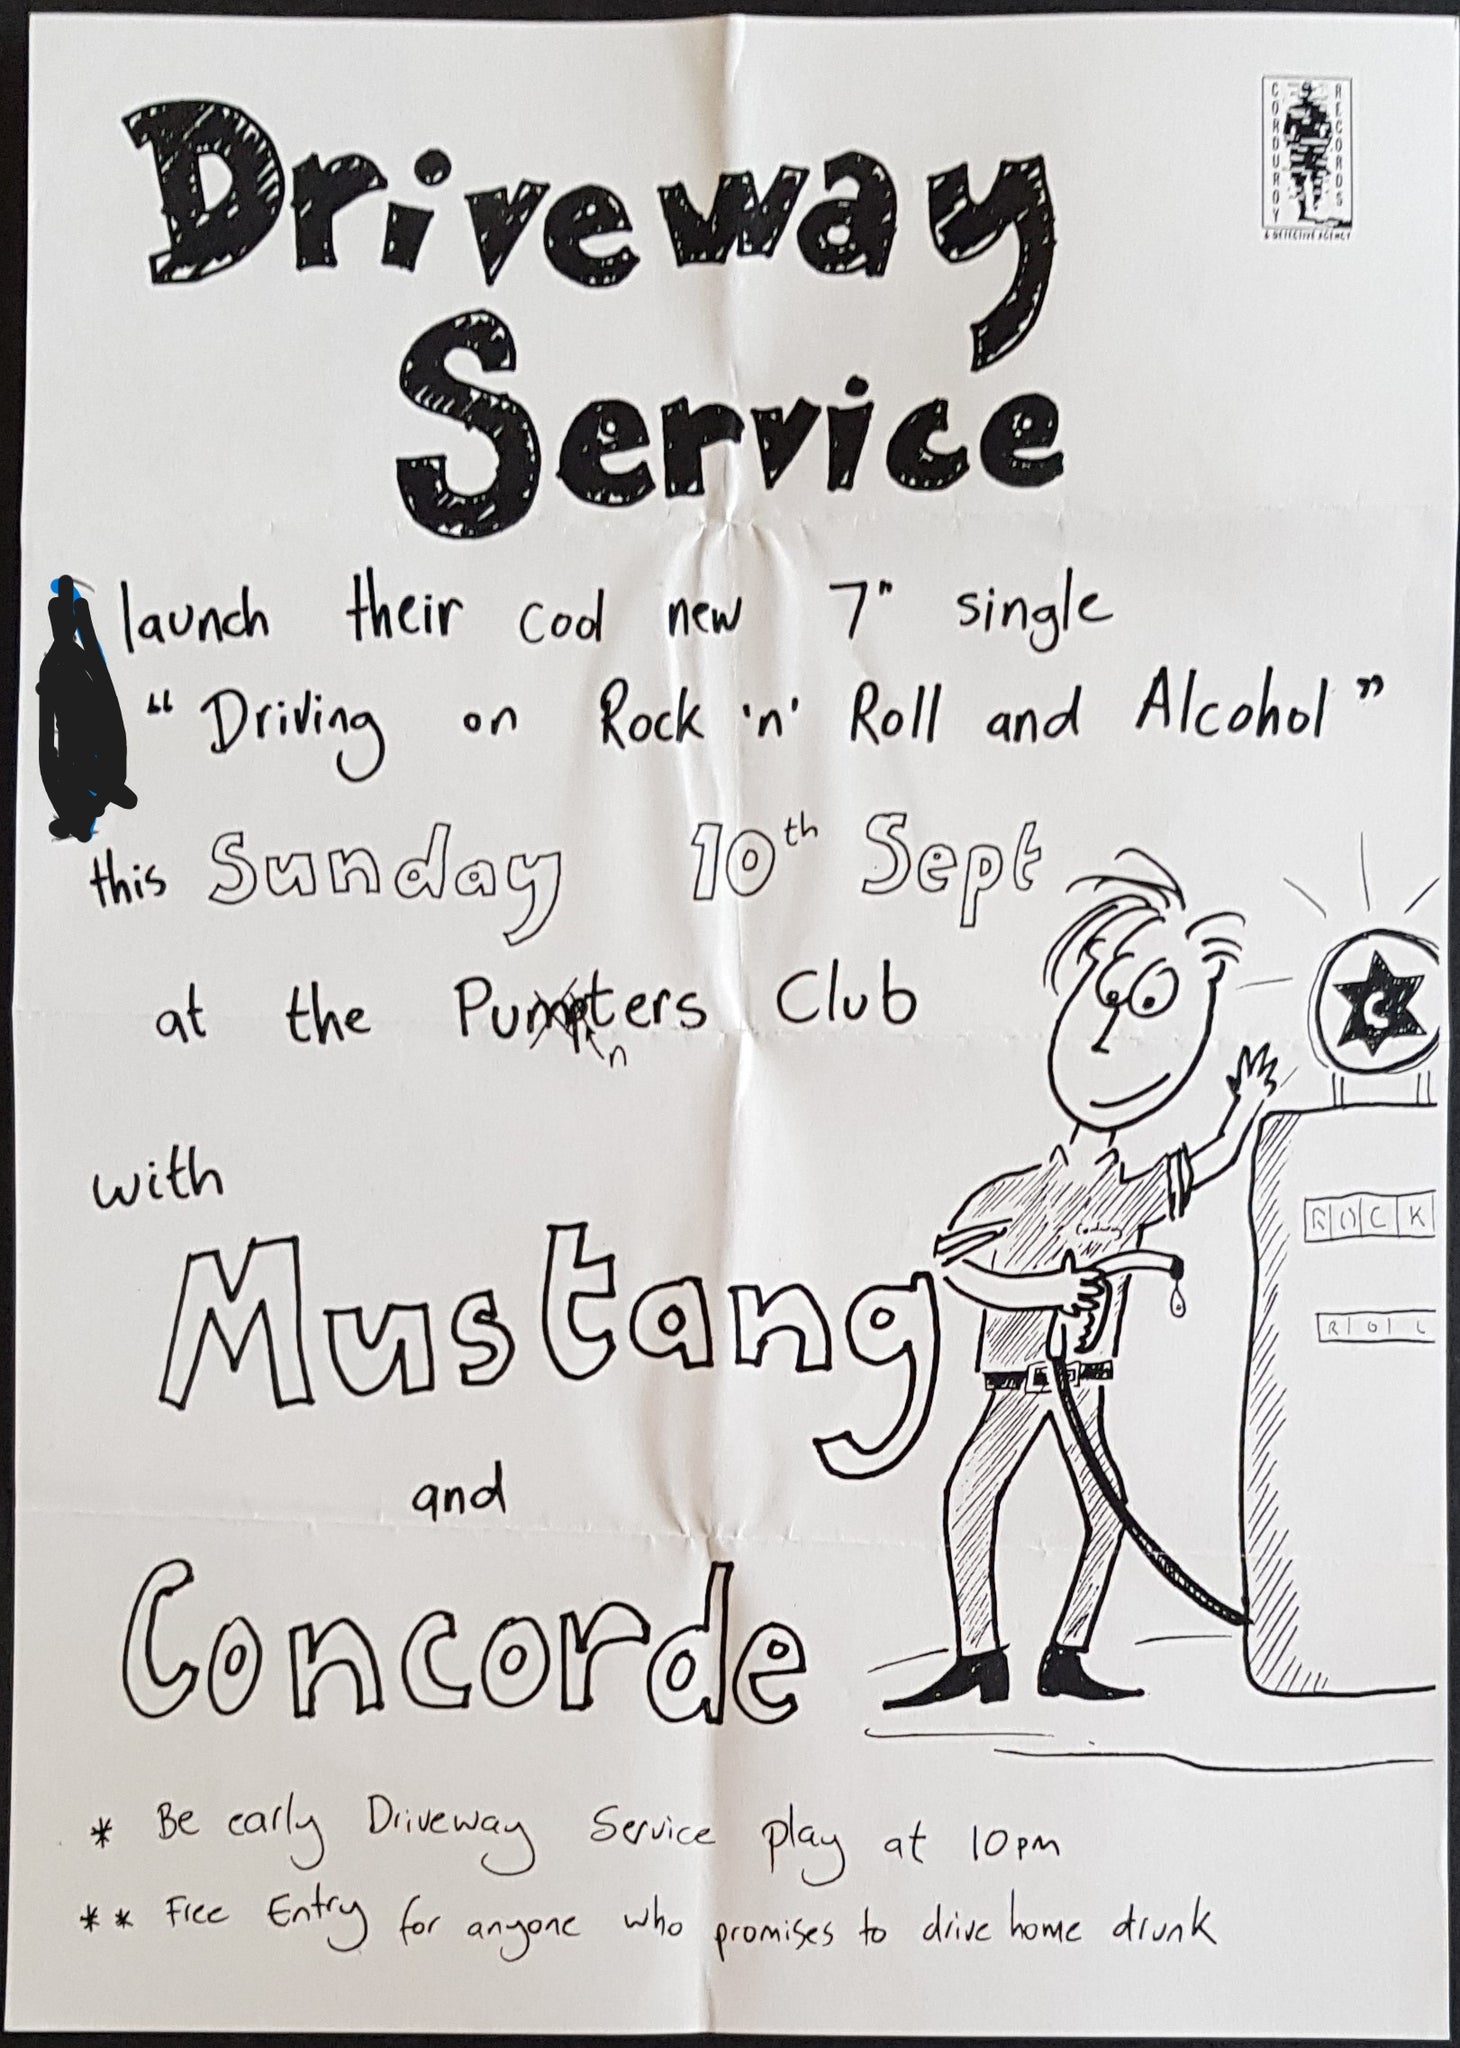 Driveway
Service
CORDUROY RECORDS
& DETECTIVE AGENCY
launch their cool new 7" single
"Driving on Rock 'n' Roll and Alcohol"
this Sunday 10th Sept
at the Punters Club
n
C
with
Mustang
ROCK
ROL
and
Concorde
* Be early Driveway Service play at 10pm
** Free Entry for anyone who promises to drive home drunk